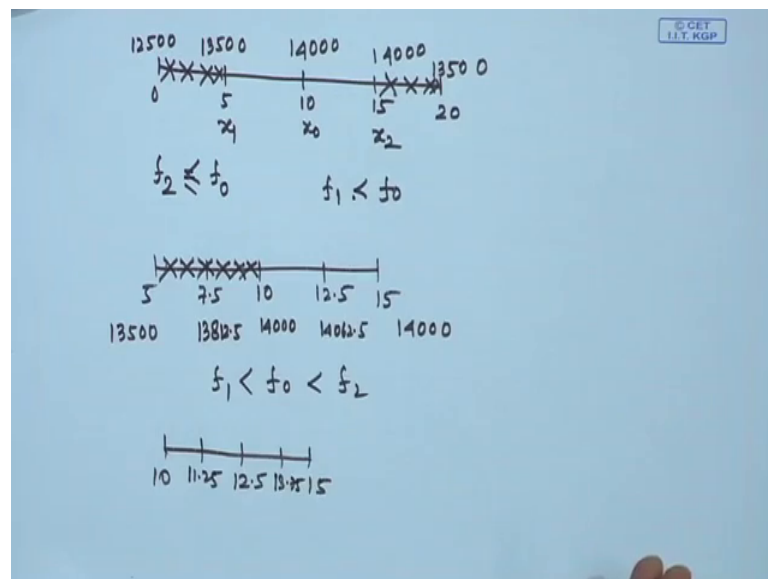 © CET
I.I.T. KGP
12500 13500 14000 14000 13500
0 5 10 15 20
x₁ x₀ x₂
f₂ ≤ f₀ f₁ < f₀
5 7.5 10 12.5 15
13500 13812.5 14000 14062.5 14000
f₁ < f₀ < f₂
10 11.25 12.5 13.75 15